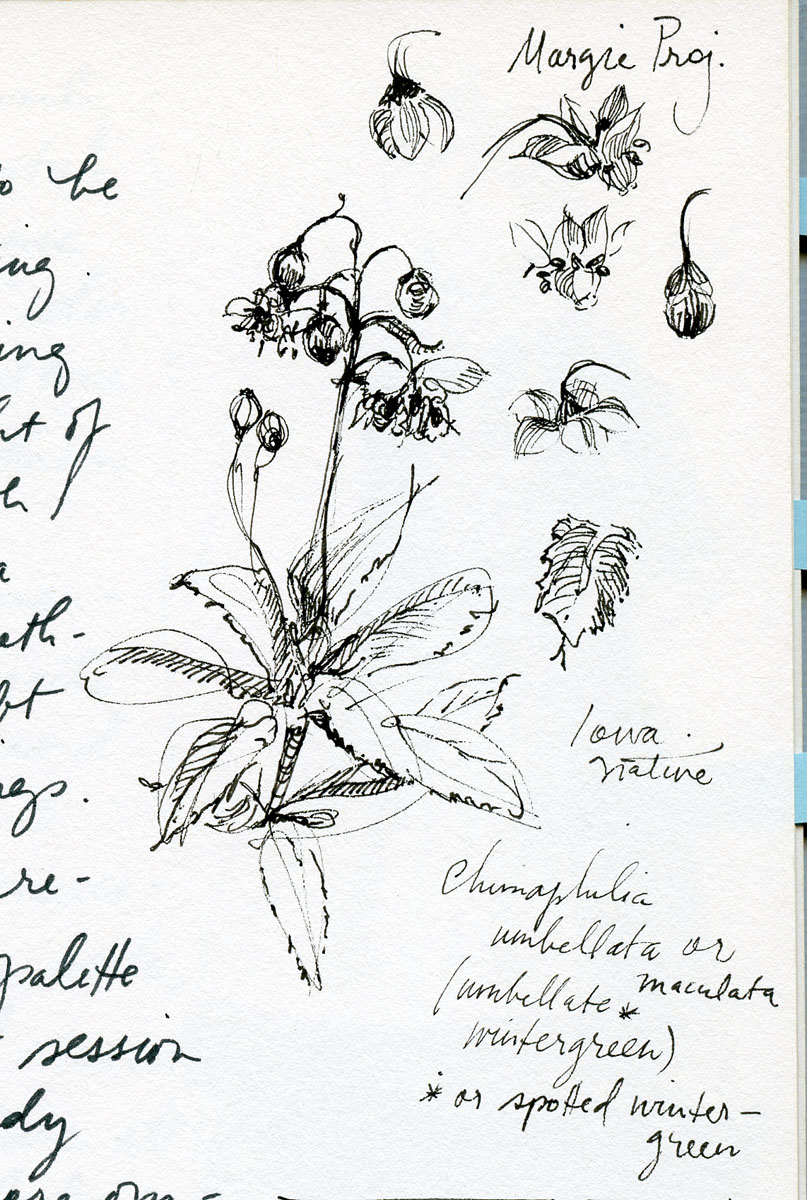 Margie Proj.
to be
ing.
ing
ht of
a
ath-
bt
ngs.
re-
palette
session
dy
ere om-
Iowa
native
Chimaphilia
umbellata or
maculata
(umbellate *
wintergreen)
* or spotted winter-
green